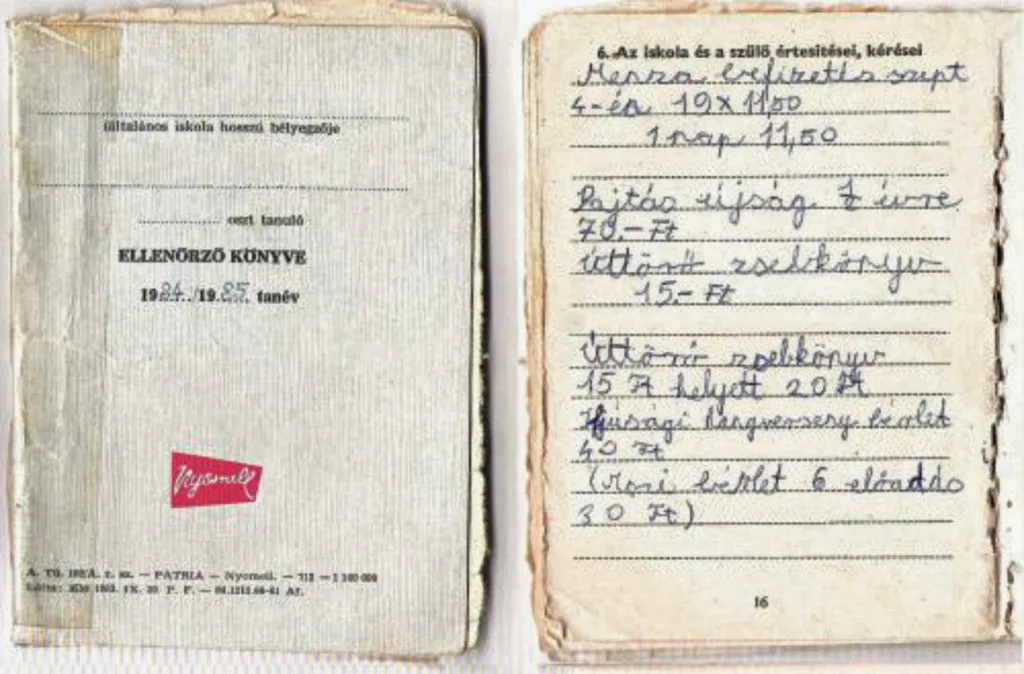 általános iskola hosszú bélyegzője
oszt tanuló
ELLENŐRZŐ KÖNYVE
1984./1985. tanév
Nyomell
A. Tü. r. sz. — PÁTRIA — Nyomell. —
6. Az iskola és a szülő értesítései, kérései
Menza befizetés szept
4-én 19 x 11,50
1 nap 11,50
Pajtás újság évre
70.- Ft
Úttörő zsebkönyv
15.- Ft
Úttörő zsebkönyv
15 Ft helyett 20 Ft
Ifjúsági hangverseny bérlet
40 Ft
(Mozi bérlet 6 előadás
30 Ft)
16